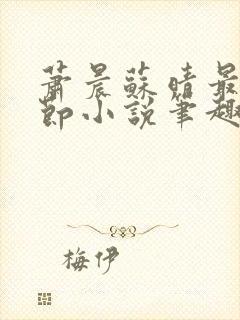 蕭晨蘇晴最
節小說筆趣
梅伊